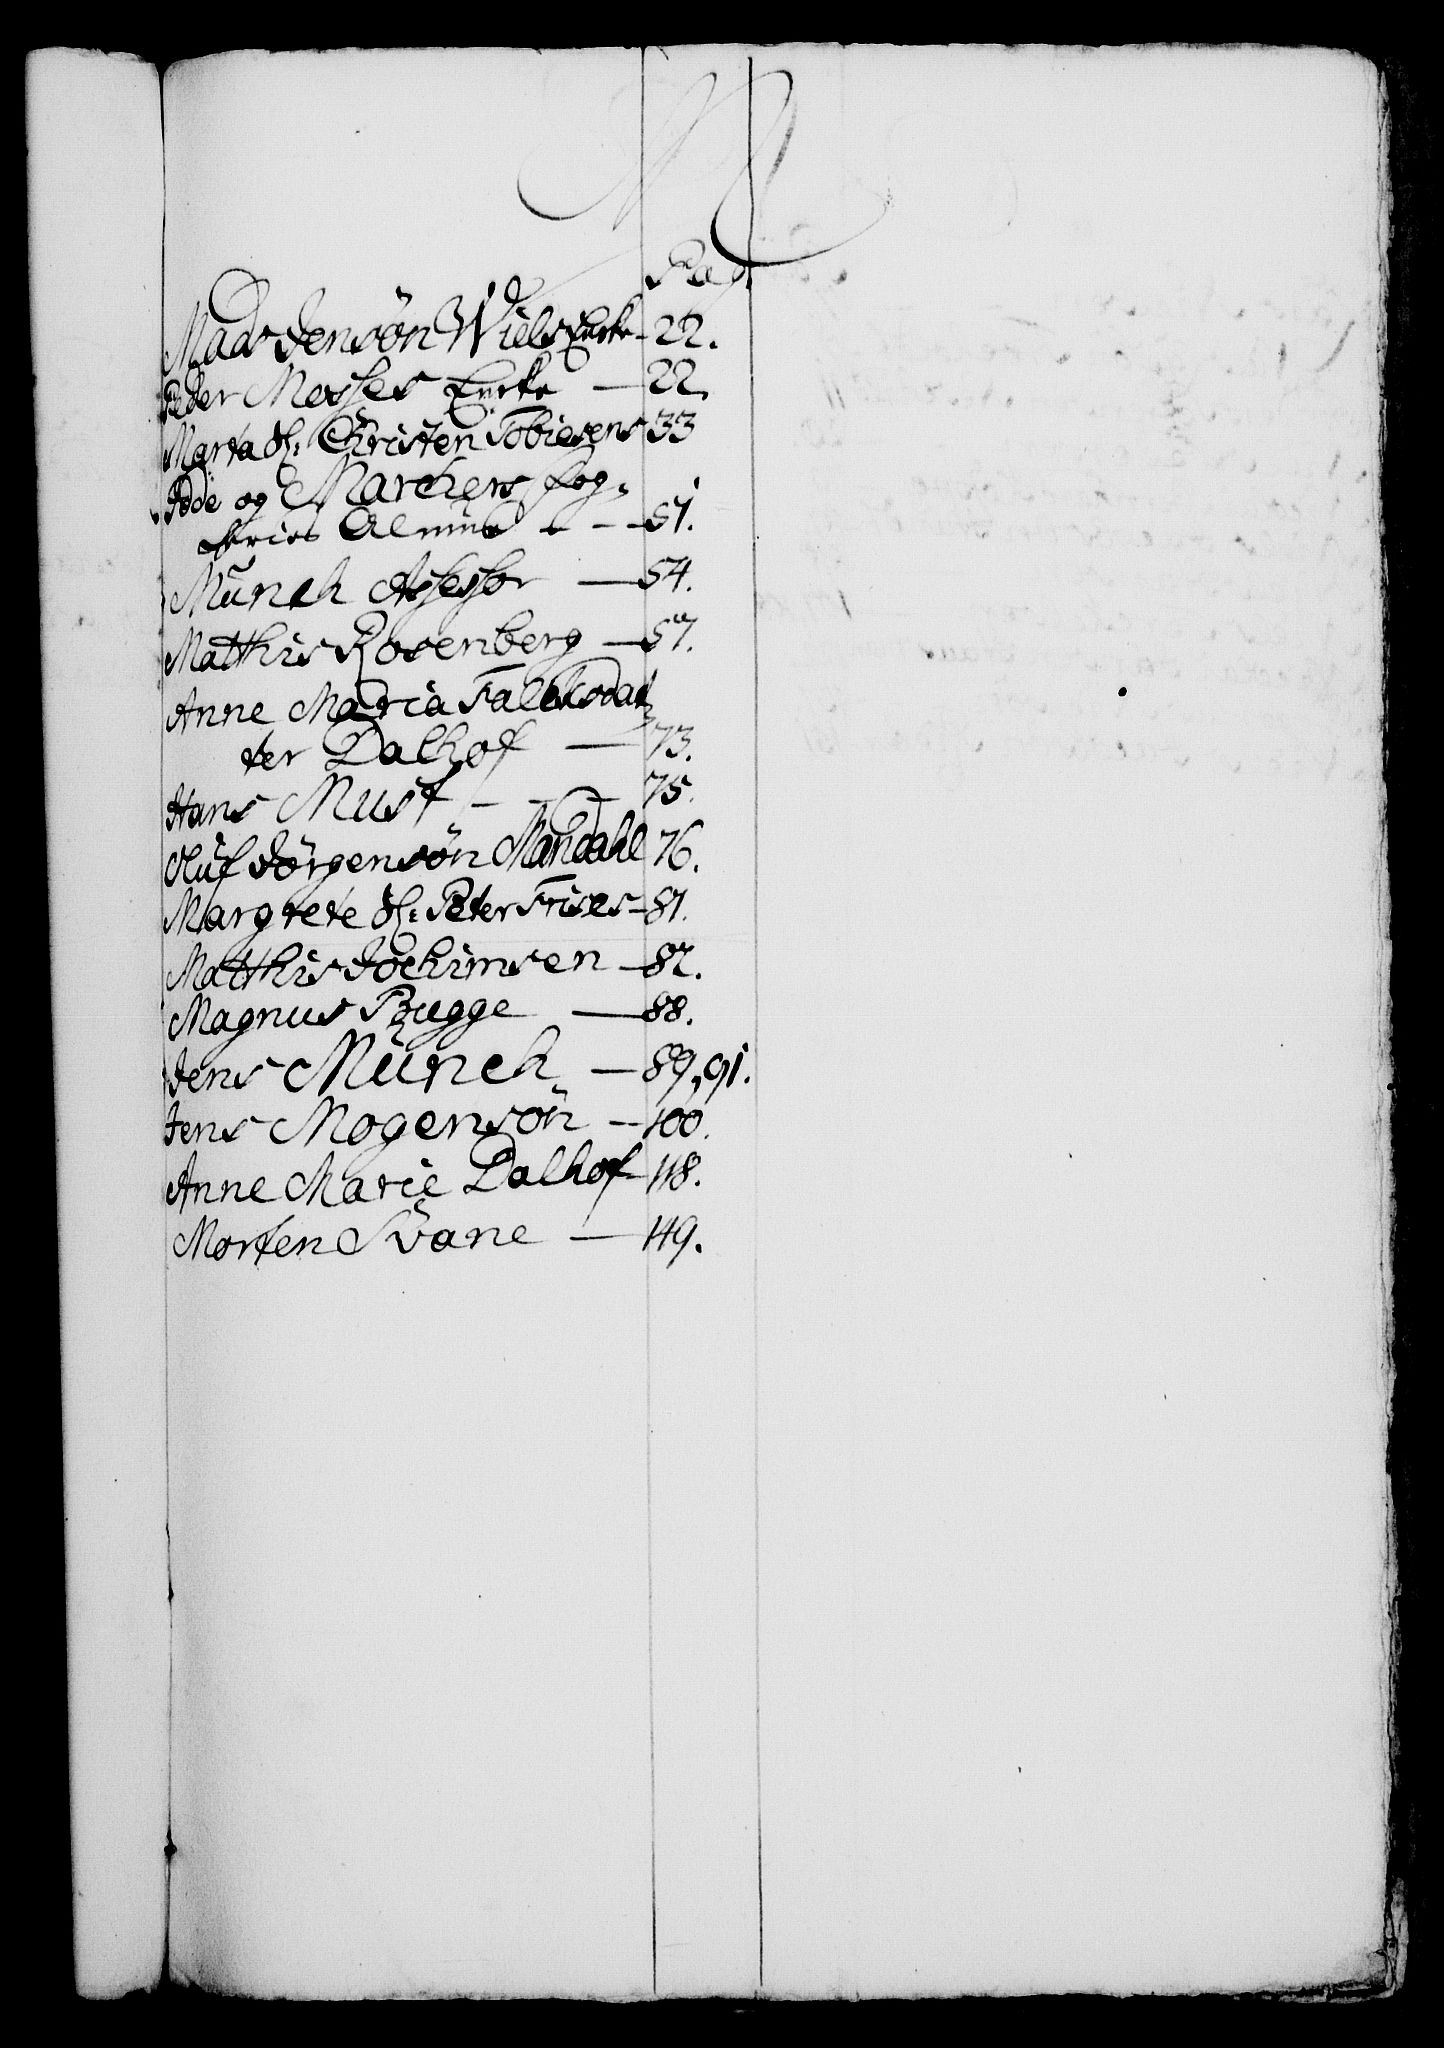 M
Pag.
Mads Jensøn Wiels Encke - 22.
Peder Moşses Encke — 22.
Marta Sl: Christen Tobiesens 33
Jdde og Markers fog-
deries Almue - - - 51.
Münch Assessor — 54.
Matthis Rosenberg — 57.
Anne Maria Falchsdat
ter Dalhof — 73.
Hans Must - - - 75.
Oluf Jörgensön Mandahl 76.
Margrete Sl: Peter Frises - 81.
Matthis Jochimsen — 82.
Magnus Bugge — 88.
Jens Münch — 89, 91.
Jens Mogensön — 100.
Anne Marie Dalhof 118.
Morten Svane — 149.